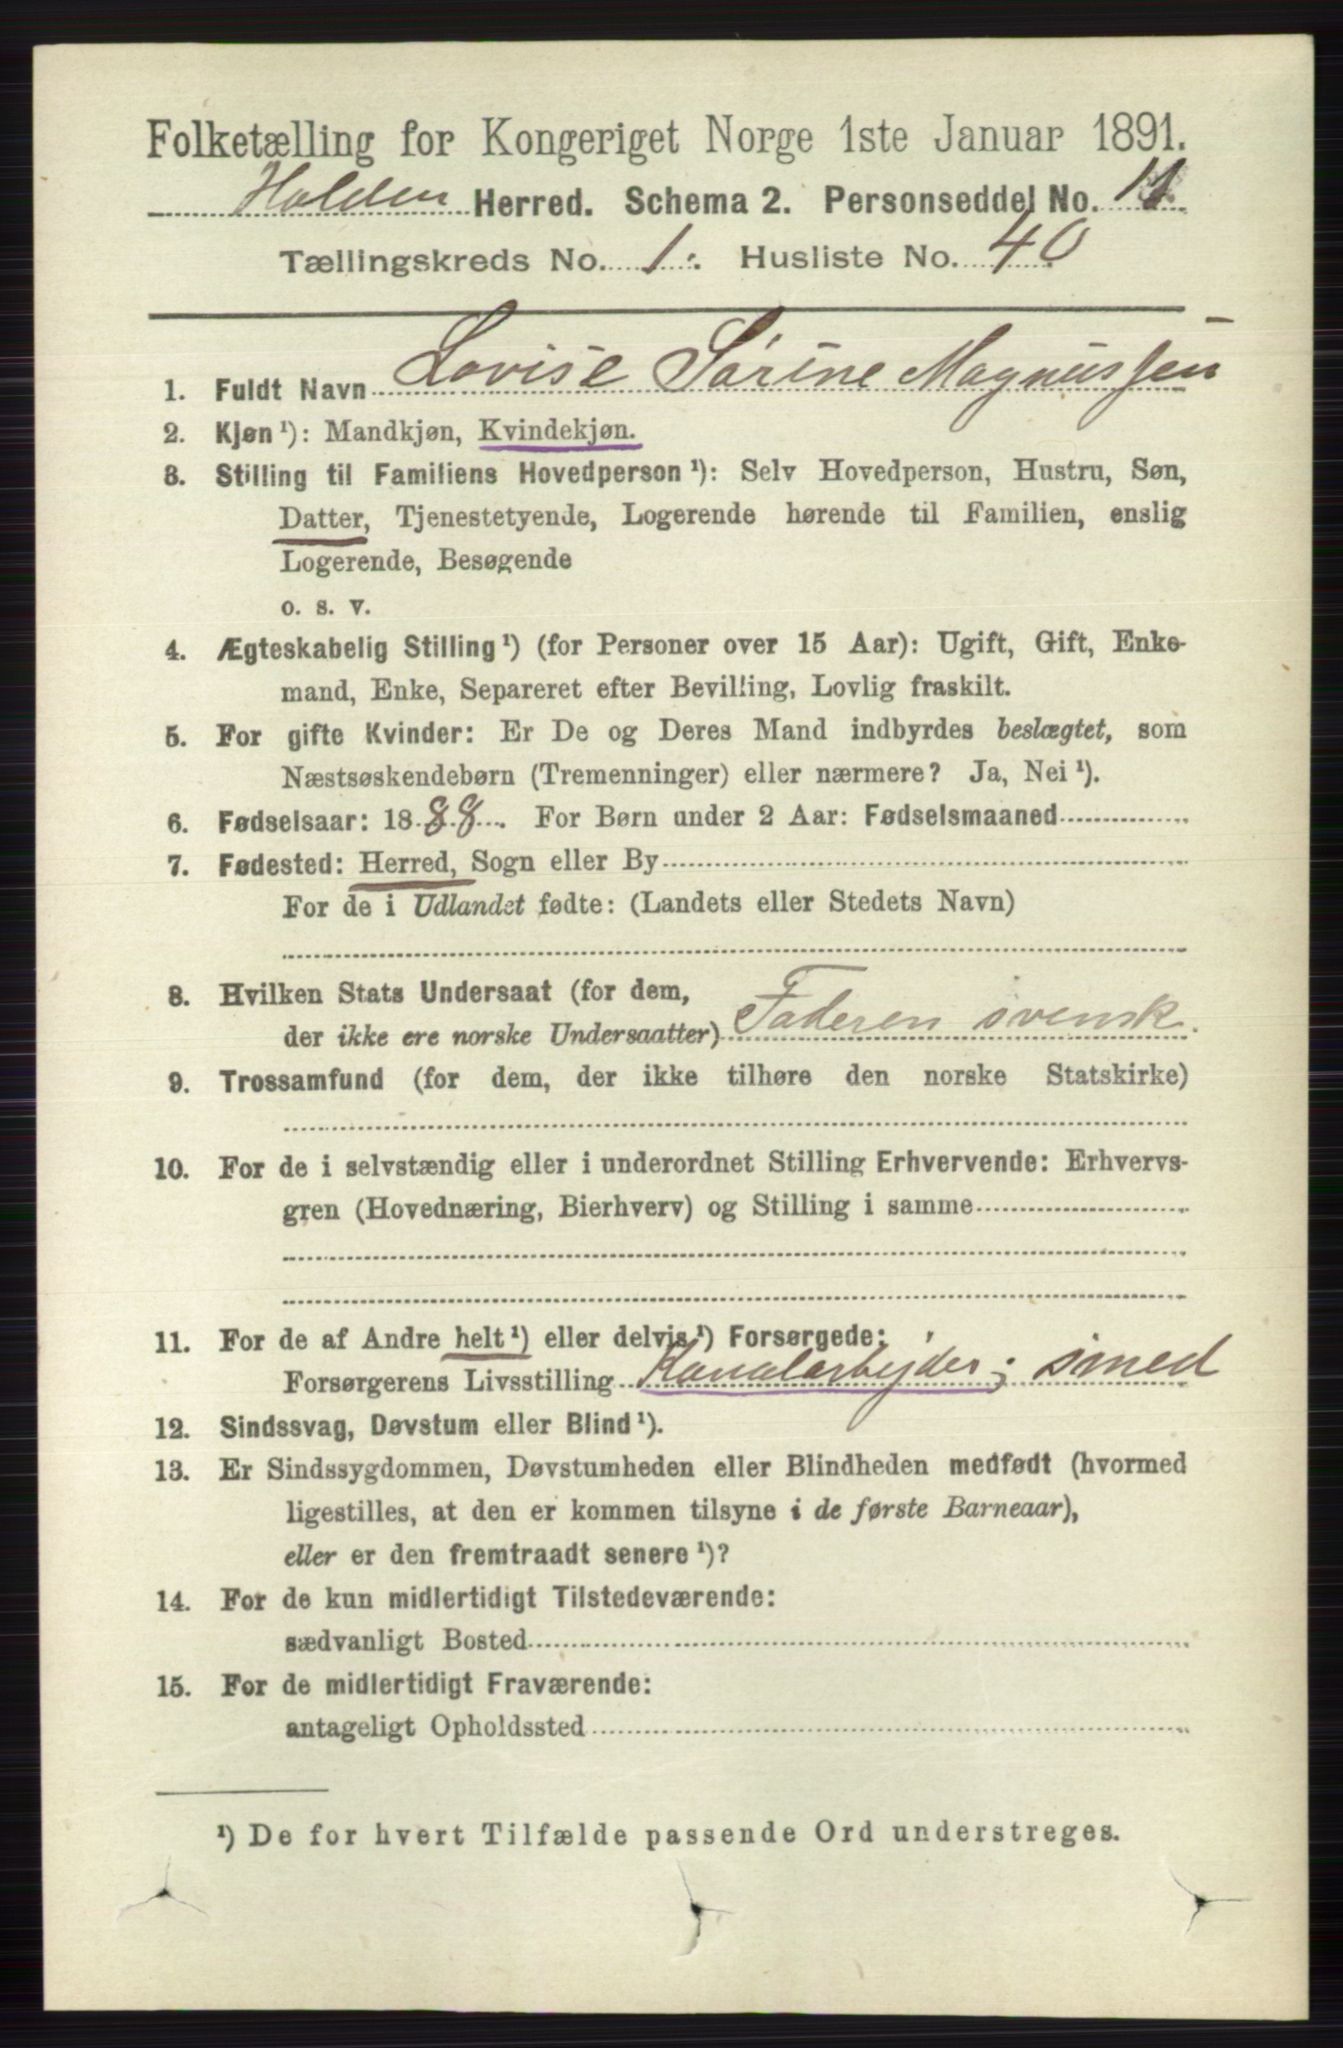 Folketælling for Kongeriget Norge 1ste Januar 1891.
Holden Herred. Schema 2. Personseddel No. 11
Tællingskreds No. 1. Husliste No. 40
1. Fuldt Navn Lovise Sørine Magnussen
2. Kjøn¹): Mandkjøn, Kvindekjøn.
3. Stilling til Familiens Hovedperson¹): Selv Hovedperson, Hustru, Søn,
Datter, Tjenestetyende, Logerende hørende til Familien, enslig
Logerende, Besøgende
o. s. v.
4. Ægteskabelig Stilling¹) (for Personer over 15 Aar): Ugift, Gift, Enke-
mand, Enke, Separeret efter Bevilling, Lovlig fraskilt.
5. For gifte Kvinder: Er De og Deres Mand indbyrdes beslægtet, som
Næstsøskendebørn (Tremenninger) eller nærmere? Ja, Nei¹).
6. Fødselsaar: 1888. For Børn under 2 Aar: Fødselsmaaned
7. Fødested: Herred, Sogn eller By
For de i Udlandet fødte: (Landets eller Stedets Navn)
8. Hvilken Stats Undersaat (for dem,
der ikke ere norske Undersaatter) Faderen svensk.
9. Trossamfund (for dem, der ikke tilhøre den norske Statskirke)
10. For de i selvstændig eller i underordnet Stilling Erhvervende: Erhvervs-
gren (Hovednæring, Bierhverv) og Stilling i samme
11. For de af Andre helt¹) eller delvis¹) Forsørgede:
Forsørgerens Livsstilling Kanalarbejder; smed
12. Sindssvag, Døvstum eller Blind¹).
13. Er Sindssygdommen, Døvstumheden eller Blindheden medfødt (hvormed
ligestilles, at den er kommen tilsyne i de første Barneaar),
eller er den fremtraadt senere¹)?
14. For de kun midlertidigt Tilstedeværende:
sædvanligt Bosted
15. For de midlertidigt Fraværende:
antageligt Opholdssted
¹) De for hvert Tilfælde passende Ord understreges.